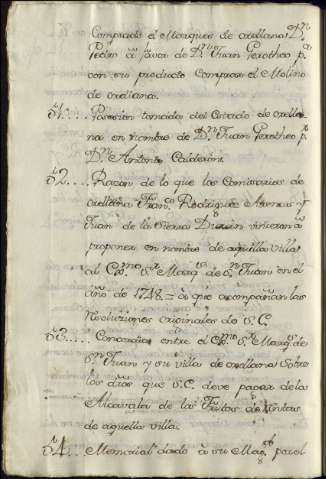 Comprado el Marques de orellana Dn
Pedro a favor de Dn Juan Gerotheo pa
con su producto Comprar el Molino
de orellana.
51.... Posesion tomada del Estado de orella-
na en nombre de Dn Juan Gerotheo pr
Dn Antonio Calderon.
52.... Razon de lo que los Comisarios de
orellana Franco Rodriguez Arenas y
Juan de la Sierra Duran vinieron a
proponer en nombre de aquella villa
al Exmo Sr Marqs de Sn Juan en el
año de 1748 = a que acompañan las
resoluciones originales de S. E.
53.... Concordia entre el Exmo Sr Marqs de
Sn Juan y su villa de orellana Sobre
los años que S. E. deve pagar de los
Alcavalas de las de
de aquella villa.
54... Memorial dado a su Magd por el